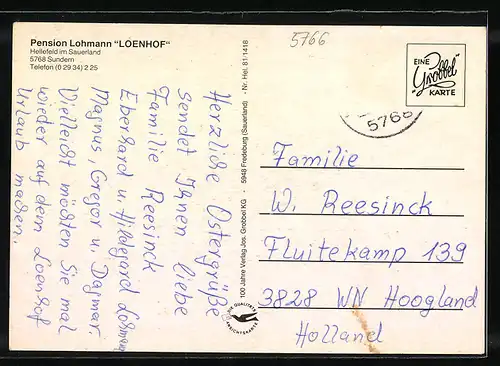 Pension Lohmann "LOENHOF"
Hellefeld im Sauerland
5768 Sundern
Telefon (0 29 34) 2 25
5766
EINE
Grobbel
KARTE
5768
Herzliche Ostergrüße
sendet Ihnen liebe
Familie Reesinck
Eberhard u. Hildgard Lohmann
Magnus, Gregor u. Dagmar
Vielleicht möchten Sie mal
wieder auf dem Loenhof
Urlaub machen.
100 Jahre Verlag Jos. Grobbel KG · 5948 Fredeburg (Sauerland) · Nr. Hel. 81/1418
DIE QUALITÄTS
ANSICHTSKARTE
Familie
W. Reesinck
Fluitekamp 139
3828 WN Hoogland
Holland